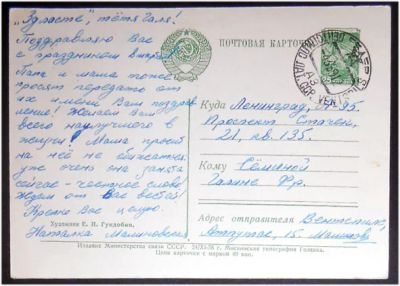 "Здласте", тётя Галя!
Поздравляю Вас
с праздником
Папа и мама тоже
просят передать от
их имени Вам поздрав-
ления! Желаем Вам
всего наилучшего в
жизни! Маша просит
на неё не обижаться
уже очень она занята
сейчас - честное слово
Ждём от Вас вестей!
Крепко Вас целую.
Наталка
Художник Е. Н. Гундобин.
ПОЧТОВАЯ КАРТОЧКА
Куда Ленинград, Л-95.
Проспект Стачек,
21, кв. 135.
Кому
Галине Фр.
Адрес отправителя Вентспилс,
15.
Издание Министерства связи СССР. Московская типография Гознака.
Цена карточки с маркой 40 коп.